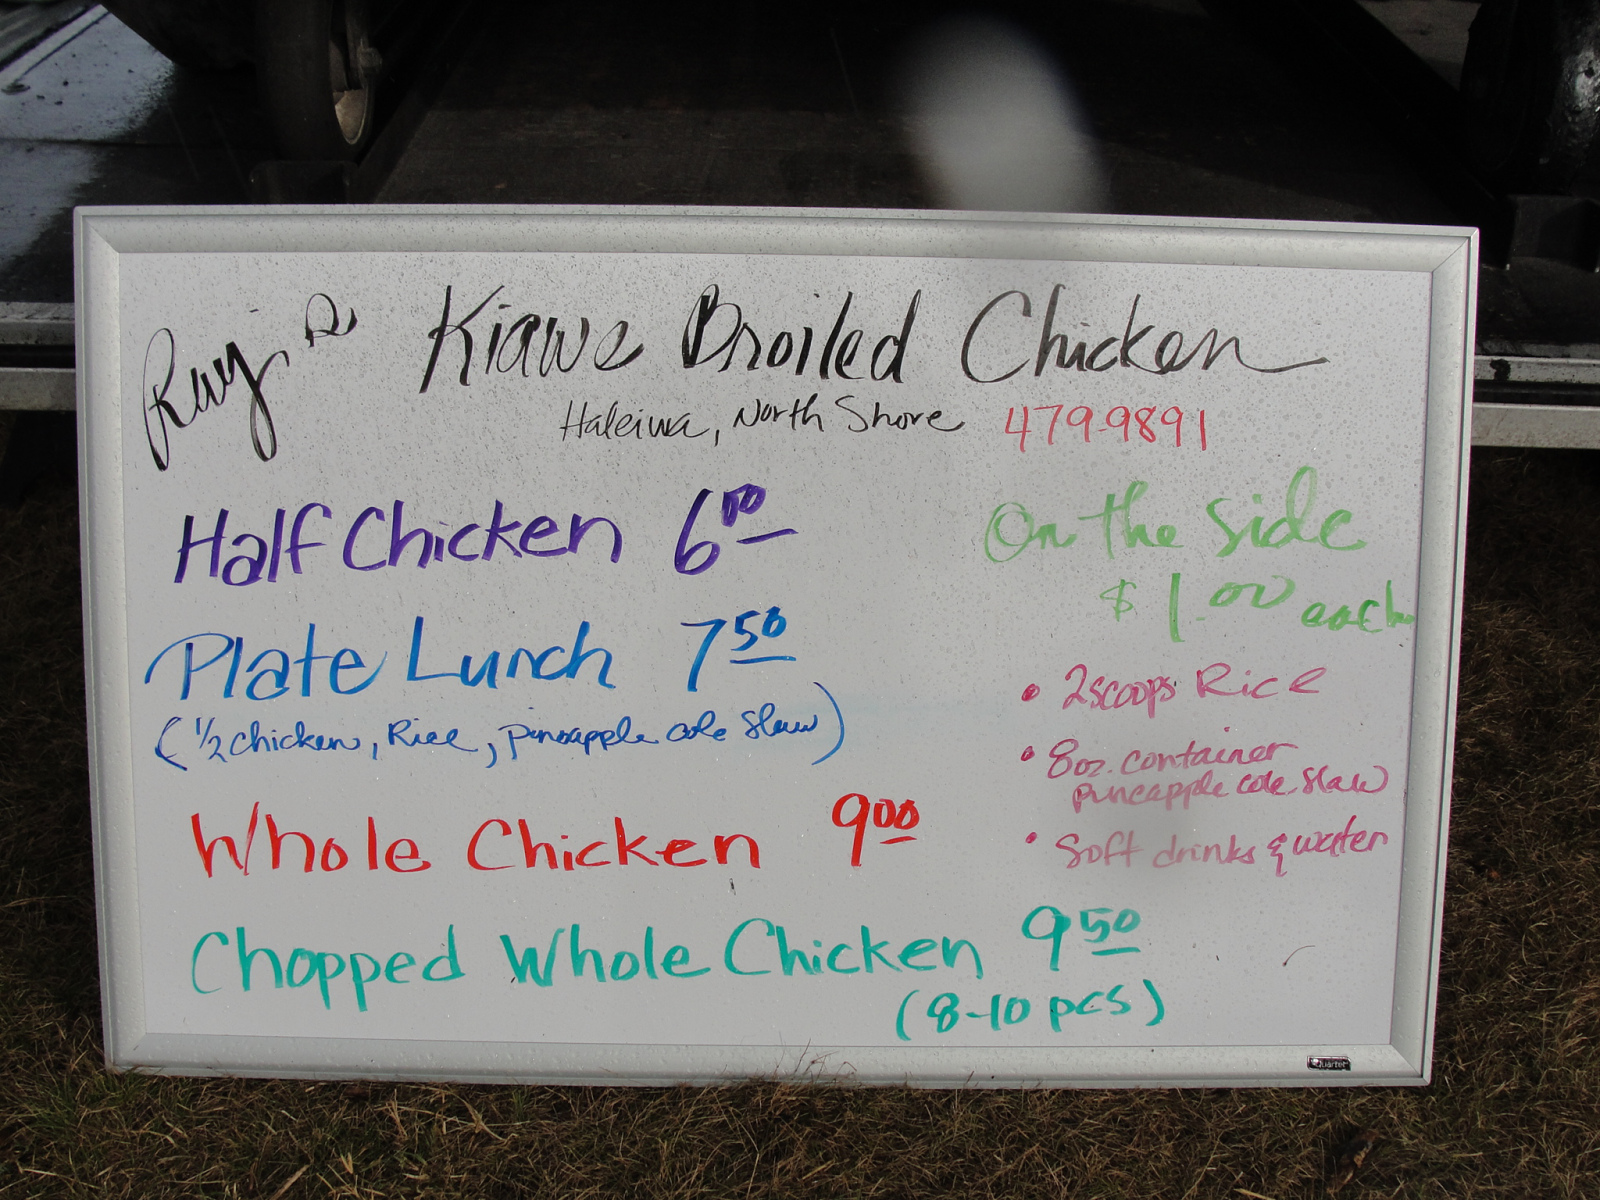 Ray's Kiawe Broiled Chicken
Haleiwa, North Shore 479-9891
Half Chicken 6.00
Plate Lunch 7.50
(1/2 chicken, Rice, pineapple cole slaw)
Whole Chicken 9.00
Chopped Whole Chicken 9.50
(8-10 pcs)
On the side
$1.00 each
• 2 scoops Rice
• 8oz. container
pineapple cole slaw
• Soft drinks & water
Quartet